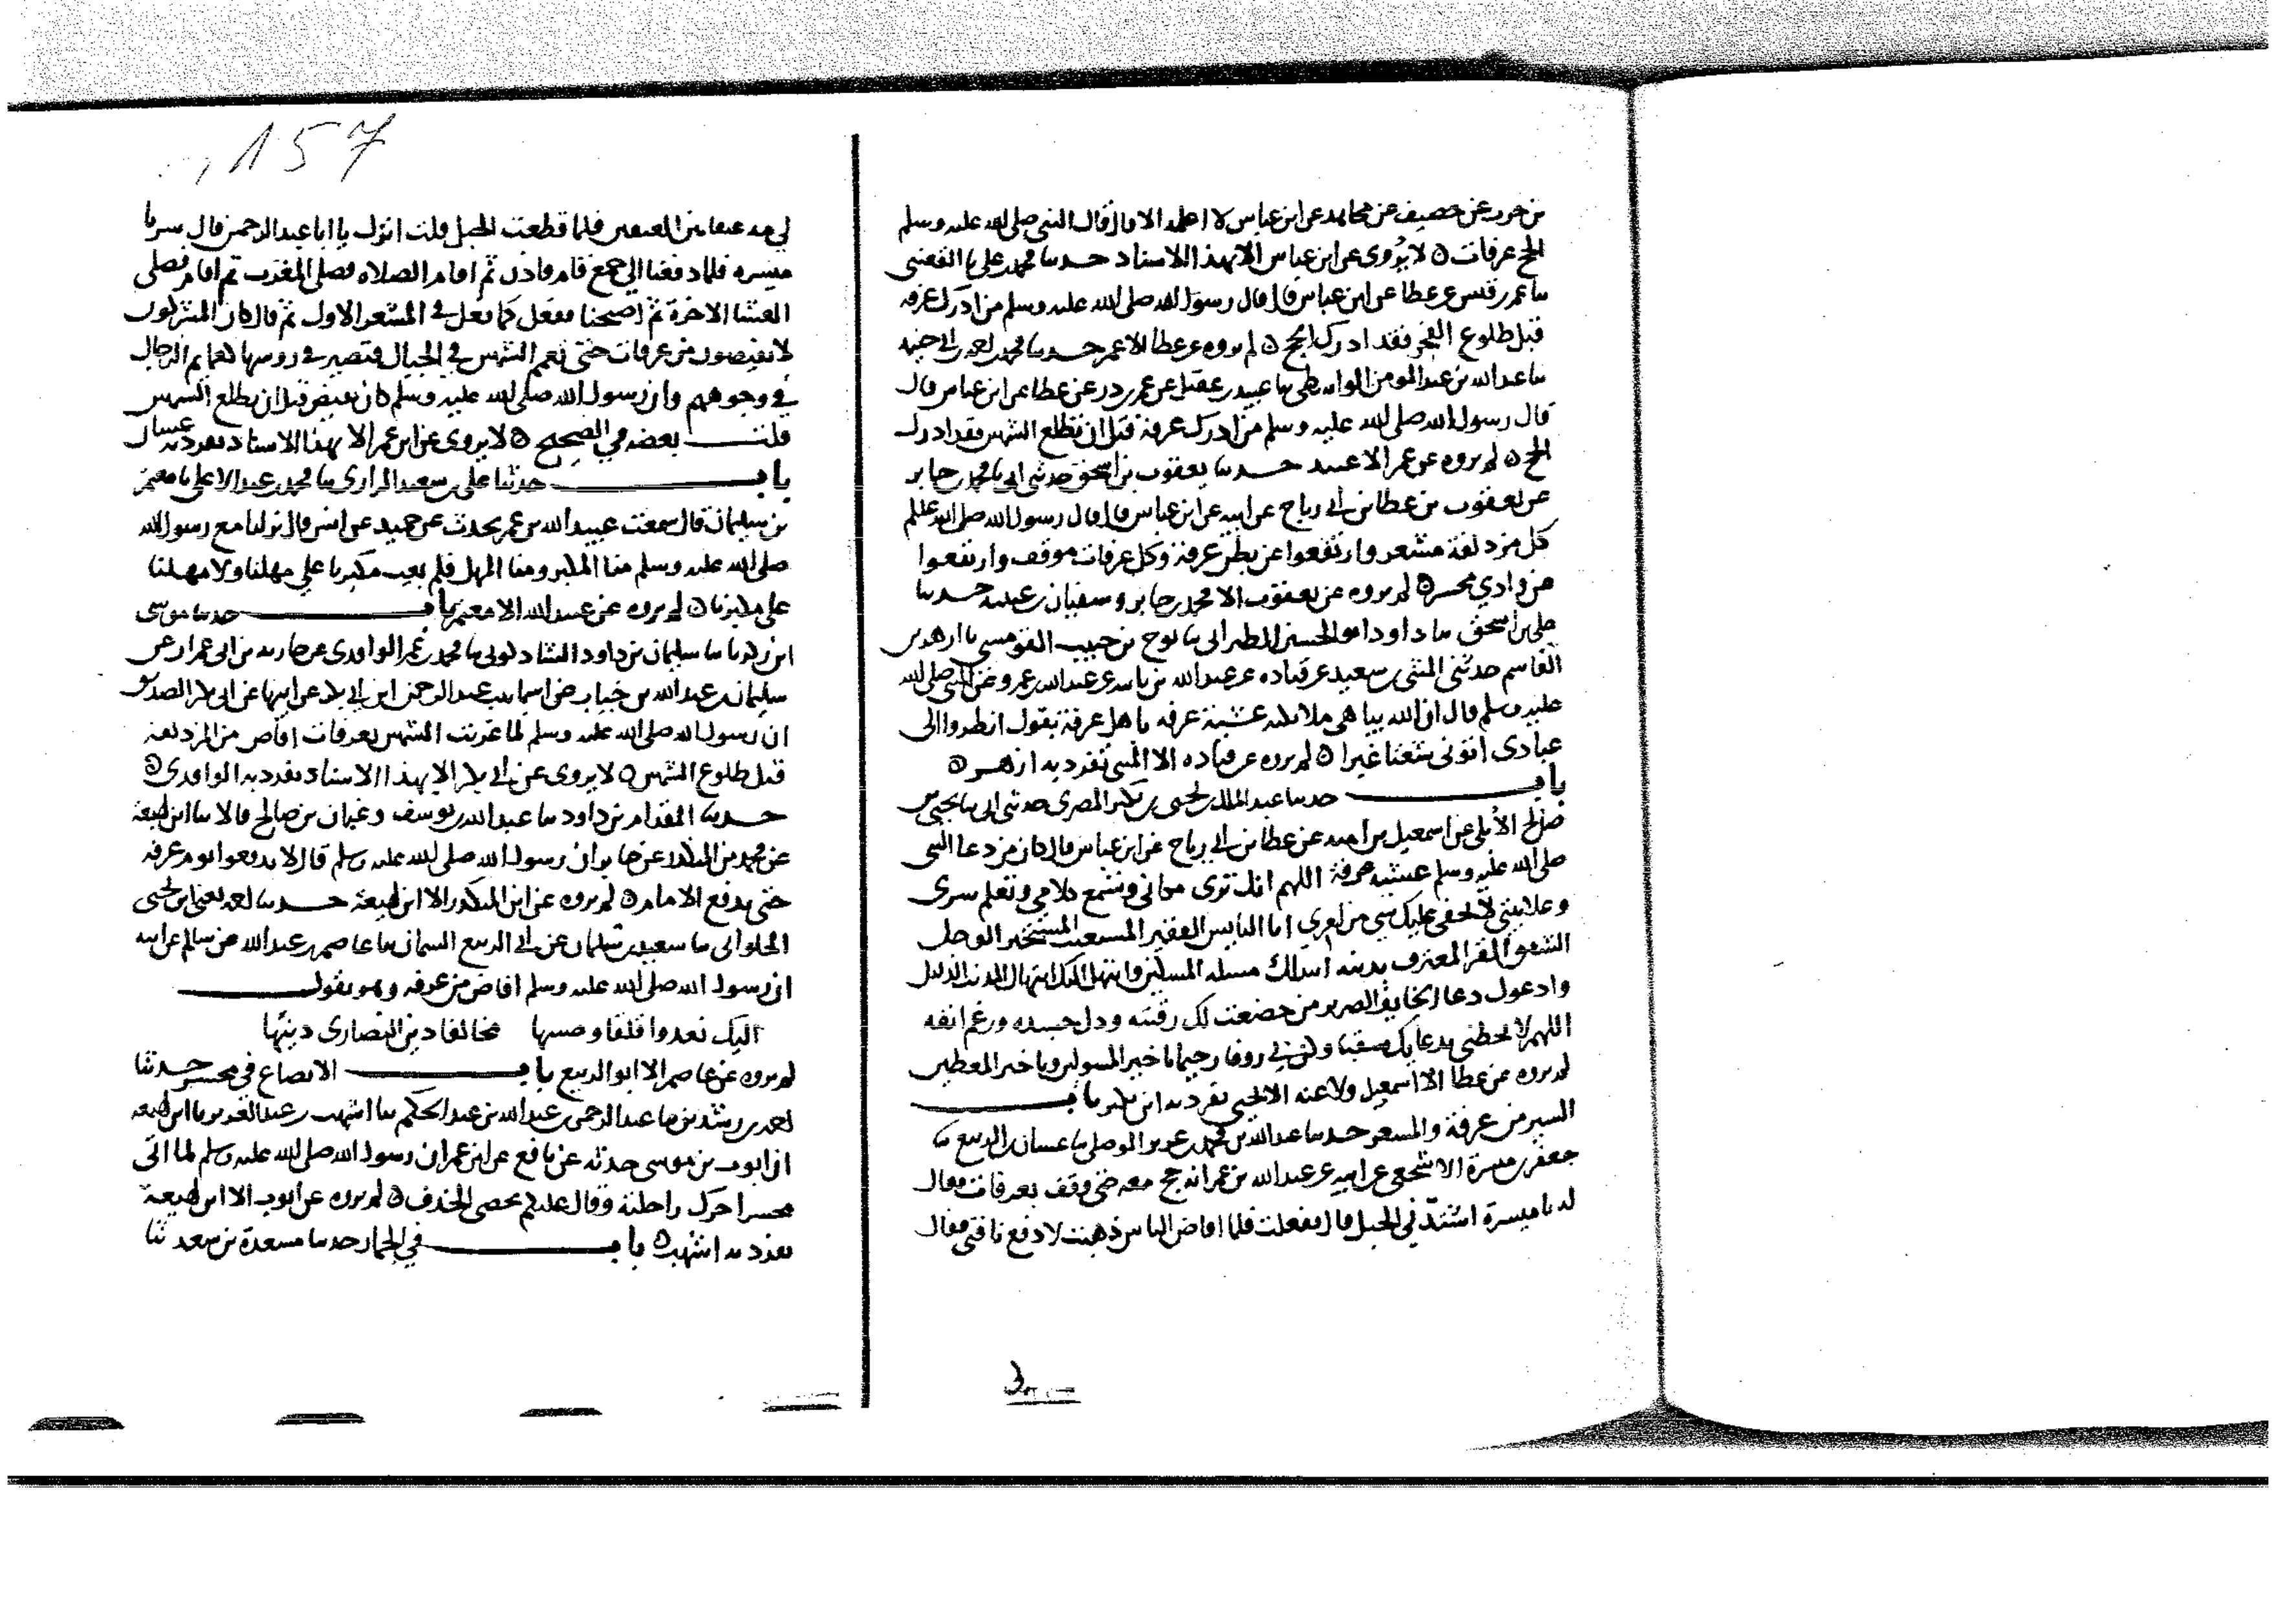 بن حرب عن خصيف عن مجاهد عن ابن عباس لا اعلمه الا قال قال النبي صلى الله عليه وسلم
الحج عرفات ه لا يروى عن ابن عباس الا بهذا الاسناد حدثنا محمد بن علي نا القعنبي
نا عمر بن قيس عن عطا عن ابن عباس قال قال رسول الله صلى الله عليه وسلم من ادرك عرفه
قبل طلوع الفجر فقد ادرك الحج ه لم يروه عن عطا الا عمر حدثنا محمد بن احمد بن ابي خيثمه
نا عبد الله بن عبد المومن الواسطي نا عبيد بن عقيل عن عمر بن ذر عن عطا عن ابن عباس قال
قال رسول الله صلى الله عليه وسلم من ادرك عرفة قبل ان تطلع الشمس فقد ادرك
الحج ه لم يروه عن عمر الا عبيد حدثنا يعقوب بن اسحق حدثني ابي نا محمد بن جابر
عن يعقوب بن عطا بن ابي رباح عن ابيه عن ابن عباس قال قال رسول الله صلى الله عليه وسلم
كل مزدلفة مشعر وارتفعوا عن بطن عرفة وكل عرفات موقف وارتفعوا
عن وادي محسر ه لم يروه عن يعقوب الا محمد بن جابر وسفيان بن عيينه حدثنا
علي بن اسحق نا داود ابو الحسين نا نوح بن حبيب القومسي نا ازهر بن
القاسم حدثني المثنى بن سعيد عن قتاده عن عبد الله بن باباه عن عبد الله بن عمرو عن النبي صلى الله
عليه وسلم قال ان الله يباهي ملائكته عشية عرفه باهل عرفة يقول انظروا الى
عبادي اتوني شعثا غبرا ه لم يروه عن قتاده الا المثنى تفرد به ازهر ه
باب حدثنا عبد الملك بن يحيى بن بكير المصري حدثني ابي نا يحيى بن
صالح الأيلي عن اسمعيل بن اميه عن عطا بن ابي رباح عن ابن عباس قال كان من دعا النبي
صلى الله عليه وسلم عشية عرفة اللهم انك ترى مكاني وتسمع كلامي وتعلم سري
وعلانيتي لا يخفى عليك شي من امري انا البايس الفقير المستغيث المستجير الوجل
المشفق المقر المعترف بذنبه اسالك مسئلة المسكين وابتهل اليك ابتهال المذنب الذليل
وادعوك دعا الخايف الضرير من خضعت لك رقبته وذل جسده ورغم انفه
اللهم لا تجعلني بدعايك شقيا وكن بي روفا رحيما يا خير المسولين ويا خير المعطين
لم يروه عن عطا الا اسمعيل ولا عنه الا يحيى تفرد به ابن بكير باب
السير من عرفة والمشعر حدثنا عبد الله بن محمد بن عزيز الموصلي نا غسان بن الربيع نا
جعفر بن ميسرة الاشجعي عن ابيه عن عبد الله بن عمر انه حج معه حتى وقف بعرفات فقال
له يا ميسرة اشتد في الجبل قال ففعلت فلما افاض الناس ذهبت لادفع ناقتي فقال
157
لي مه عنقا بين العنقين فلما قطعت الجبل قلت انزل يا ابا عبد الرحمن قال سر يا
ميسره فلما دفعنا الى جمع قام فاذن ثم اقام الصلاه فصلى المغرب ثم اقام فصلى
العشا الاخرة ثم اصبحنا ففعل كما فعل في المشعر الاول ثم قال كان المشركون
لا يفيضون من عرفات حتى تعمم الشمس في الجبال فتصير في روسها كعمايم الرجال
في وجوههم وان رسول الله صلى الله عليه وسلم كان يفيض قبل ان يطلع الشمس
قلت بعضه في الصحيح ه لا يروى عن ابن عمر الا بهذا الاسناد تفرد به غسان
باب حدثنا علي بن سعيد الرازي نا محمد بن عبد الاعلى نا معتمر
بن سليمان قال سمعت عبيد الله بن عمر يحدث عن حميد عن انس قال نزلنا مع رسول الله
صلى الله عليه وسلم منا المكبر ومنا المهل فلم يعب مكبرنا على مهلنا ولا مهلنا
على مكبرنا ه لم يروه عن عبيد الله الا معتمر باب حدثنا موسى
ابن زكريا نا سليمان بن داود الشاذكوني نا محمد بن عمر الواقدي عن بن ابي عمران عن
سليمان بن عبد الله بن خباب عن اسما بنت عبد الرحمن ابن ابي بكر عن ابيها عن ابي بكر الصديق
ان رسول الله صلى الله عليه وسلم لما غربت الشمس بعرفات افاض من المزدلفة
قبل طلوع الشمس ه لا يروى عن ابي بكر الا بهذا الاسناد تفرد به الواقدي ه
حدثنا المقدام بن داود نا عبد الله بن يوسف وعثمان بن صالح قالا نا ابن لهيعة
عن محمد بن المنكدر عن جابر ان رسول الله صلى الله عليه وسلم قال لا يدفعوا يوم عرفه
حتى يدفع الامام ه لم يروه عن ابن المنكدر الا ابن لهيعة حدثنا احمد يعني ابن يحيى
الحلواني نا سعيد بن سليمان عن ابي الربيع السمان نا عاصم بن عبيد الله عن سالم عن ابيه
ان رسول الله صلى الله عليه وسلم افاض من عرفه وهو يقول
اليك تعدوا قلقا وضينها مخالفا دين النصارى دينها
لم يروه عن عاصم الا ابو الربيع باب الايضاع في محسر حدثنا
احمد بن رشدين نا عبد الرحمن بن عبد الله بن عبد الحكم نا اشهب بن عبد العزيز نا ابن لهيعه
ان ايوب بن موسى حدثه عن نافع عن ابن عمر ان رسول الله صلى الله عليه وسلم لما اتى
محسرا حرك راحلته وقال عليكم بحصى الخذف ه لم يروه عن ايوب الا ابن لهيعة
تفرد به اشهب ه باب في الجمار حدثنا مسعدة بن سعد نا